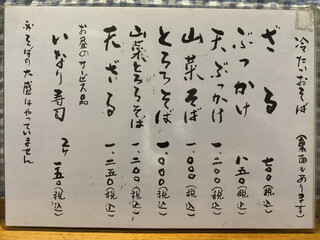 冷たいおそば (裏面もあります)
ざる 七〇〇(税込)
ぶっかけ 八五〇(税込)
天ぶっかけ 一、二〇〇(税込)
山菜そば 一、〇〇〇(税込)
とろろそば 一、〇〇〇(税込)
山菜とろろそば 一、二〇〇(税込)
天ざる 一、二五〇(税込)
お昼のサービス品
いなり寿司 2ヶ 一五〇(税込)
おそばの大盛はやっていません